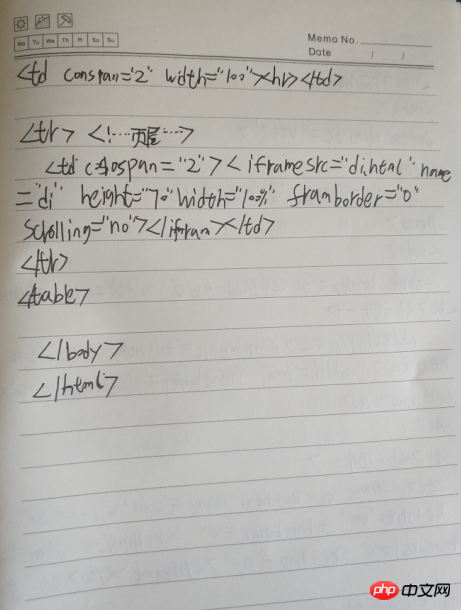 Mo Tu We Th Fr Sa Su
Memo No.
Date / /
<td conspan="2" width="100"><hr></td>
<tr> <!---页尾--->
<td cospan="2"><iframe src="di.html" name
="di" height="70" width="100%" framborder="0"
scrolling="no"></ifram></td>
</tr>
</table>
</body>
</html>
php 中文网